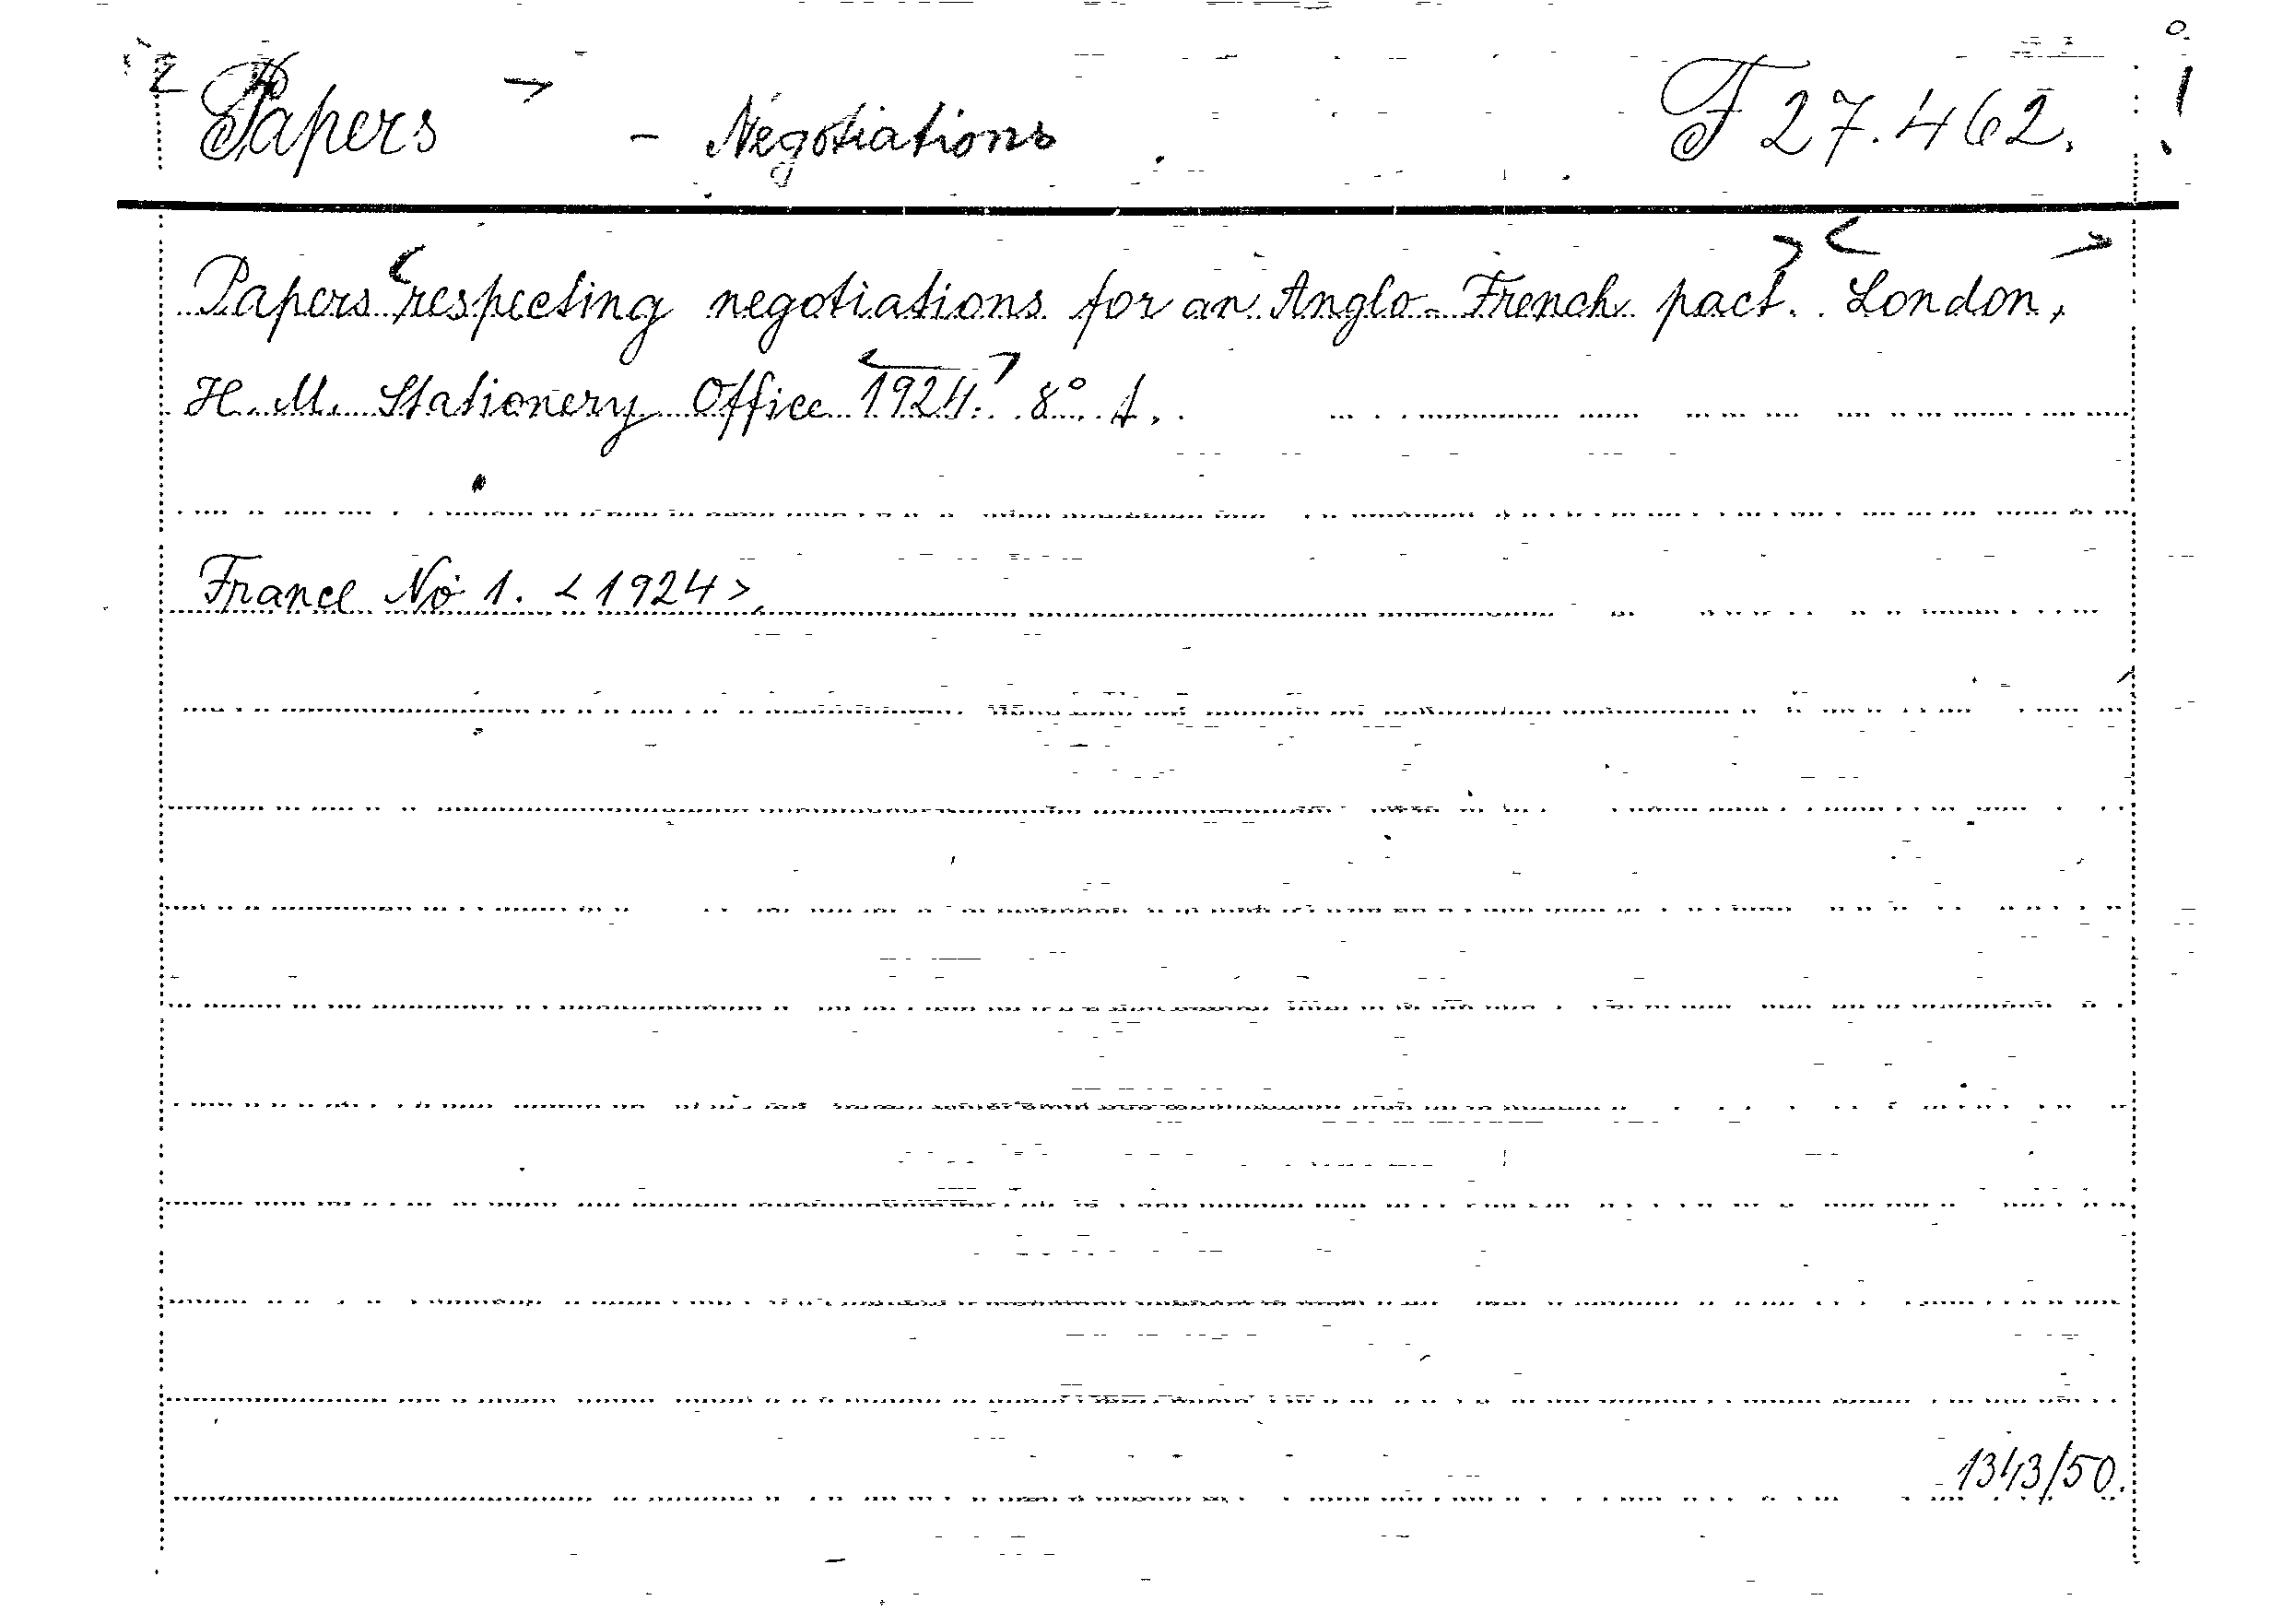 Papers - Negotiations F 27.462.
Papers respecting negotiations for an Anglo-French pact. London,
H. M. Stationery Office 1924. 8°.
France No 1. <1924>.
1343/50.